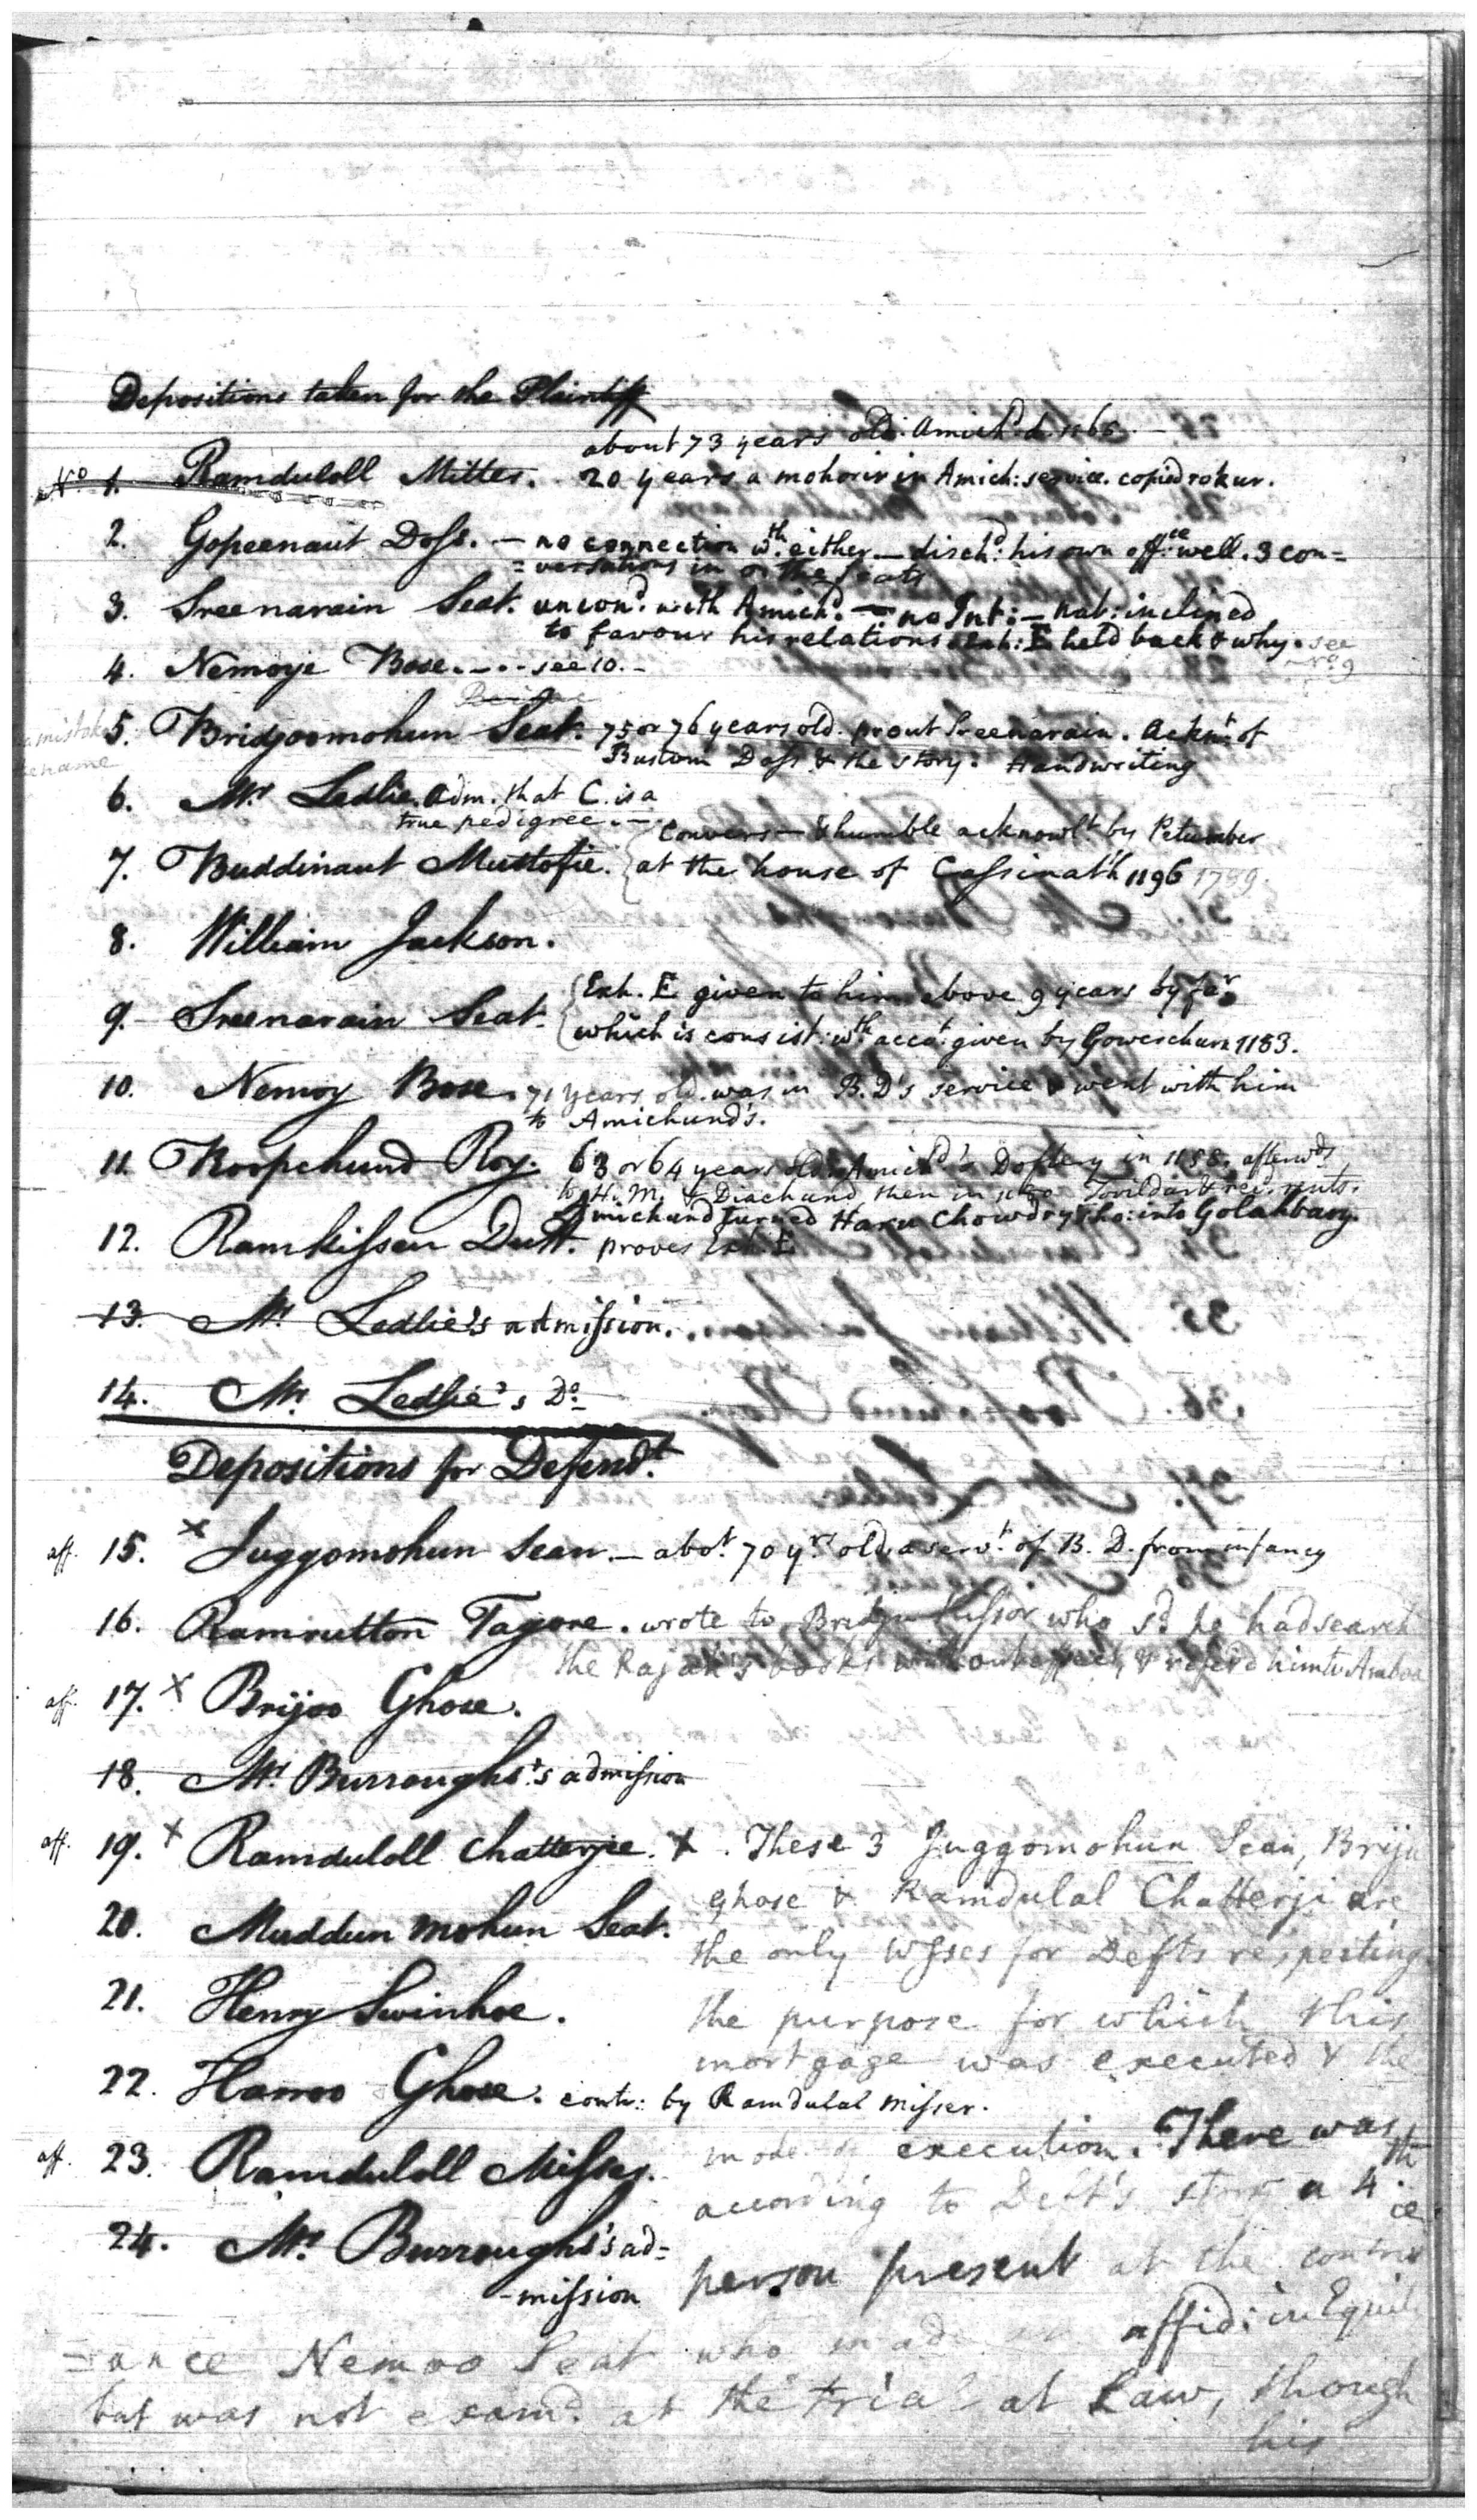 Depositions taken for the Plaintiff
about 73 years old. Amich.d d. 116
No 1. Ramduloll Mitter. 20 years a mohorir in Amich: service. copied rokur.
2. Gopeenaut Doss. — no connection wth either — disch.d his own off.ce well. 3 con=
=versations in or the Seats
3. Sreenarain Seat. uncon.d with Amich.d — no Int: — nat: inclined
to favour his relations Exh: E held back & why. see
No 9
4. Nemoye Bose. — . . see 10. —
5. Bridjoomohun Seat. 75 or 76 years old. prout Sreenarain. Ackn.t of
a mistake
name
Bustom Doss & the story. Handwriting
6. Mr Ledlie. adm. that C. is a
true pedigree. —
Convers — & humble acknowl.t by Petumber
7. Buddinaut Mustofie. at the house of Cassinath 1196 1789.
8. William Jackson.
9. Sreenarain Seat. Exh. E given to him above 9 years by far
which is consist: wth acct given by Gowerchurn 1183.
10. Nemoy Bose. 71 years old. was in B.D's service & went with him
to Amichund's.
11. Roopchund Roy. 63 or 64 years old. Amich.d's Doftery in 1158. afterwds
to H. M. & Diachund then in Tovildar & rec.d rents.
Amichund turned Haru Chowdry's ho: into Golahbary.
12. Ramkissen Dutt. proves Exh. E
13. Mr Ledlie's admission.
14. Mr Ledlie's Do
Depositions for Defendt.
aff. 15. x Juggomohun Sean. — abot. 70 yrs old. a servt. of B. D. from infancy
16. Ramrutton Tagore. wrote to Bridju Kissor who sd he had search
the Rajah's books without effect, & refer'd him to Amboa
aff. 17. x Brijoo Ghose.
18. Mr Burroughs's admission
aff. 19. x Ramduloll Chatterjee. x . These 3 Juggomohun Sean, Briju
Ghose & Ramdulal Chatterji are
20. Muddun mohun Seat.
the only Wsses for Defts respecting
21. Henry Swinhoe.
the purpose for which this
mortgage was executed & the
22. Harroo Ghose. contr: by Ramdulal Misser.
mode of execution. There was
aff. 23. Ramduloll Misser.
according to Deft's story a 4th
24. Mr Burroughs's ad=
-mission
person present at the contriv
=ance Nemoo Seat who made an affid: in Equit
but was not examd. at the trial at Law, though
his